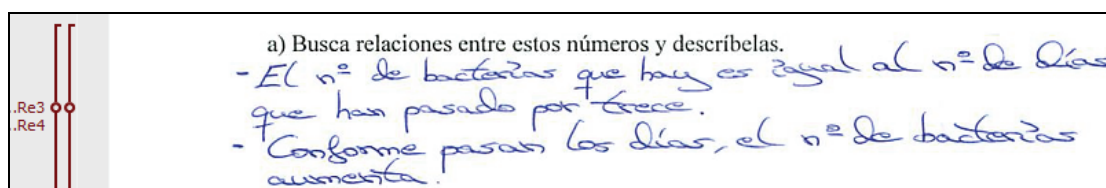 a) Busca relaciones entre estos números y descríbelas.
- El nº de bacterias que hay es igual al nº de días
que han pasado por trece.
..Re3
..Re4
- Conforme pasan los días, el nº de bacterias
aumenta.